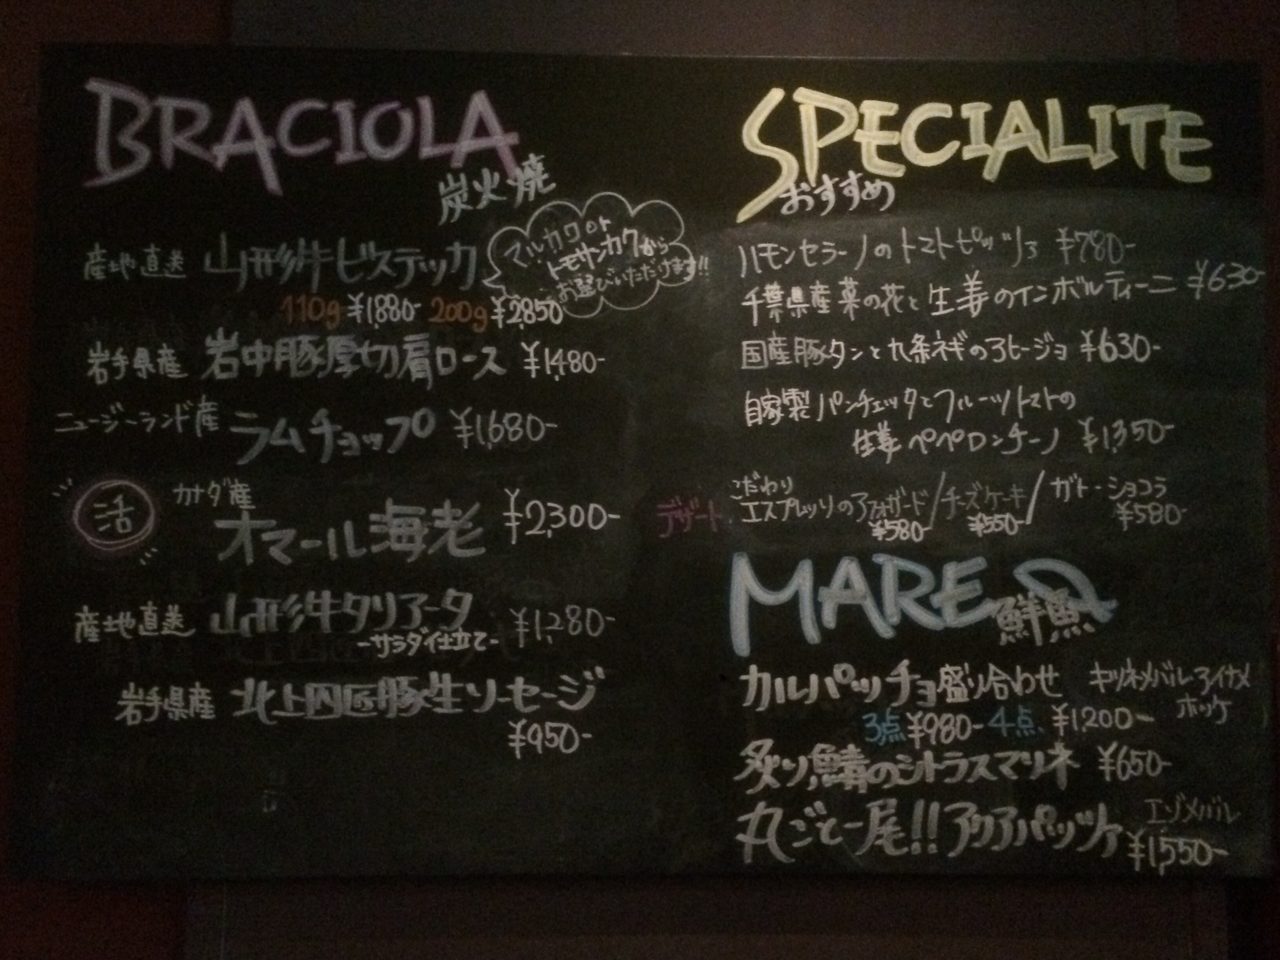 BRACIOLA
炭火焼
産地直送 山形牛ビステッカ
マルカワ or
トモサンカクから
お選びいただけます!!
110g ¥1,880- 200g ¥2,850
岩手県産 岩中豚厚切肩ロース ¥1,480-
ニュージーランド産 ラムチョップ ¥1,680-
活 カナダ産
オマール海老 ¥2,300-
産地直送 山形牛タリアータ ¥1,280-
-サラダ仕立て-
岩手県産 北上四匠豚生ソーセージ
¥950-
SPECIALITE
おすすめ
ハモンセラーノのトマトピッツァ ¥780-
千葉県産菜の花と生姜のインボルティーニ ¥630-
国産豚タンと九条ネギのアヒージョ ¥630-
自家製パンチェッタとフルーツトマトの
生姜ペペロンチーノ ¥1,350-
デザート こだわり
エスプレッソのアフォガード/チーズケーキ/ガトーショコラ
¥580- ¥550- ¥580-
MARE
鮮魚
カルパッチョ盛り合わせ キツネメバル アイナメ
ホッケ
3点 ¥980- 4点 ¥1,200-
炙り鯖のシトラスマリネ ¥650-
丸ごと一尾!!アクアパッツァ エゾメバル
¥1,550-